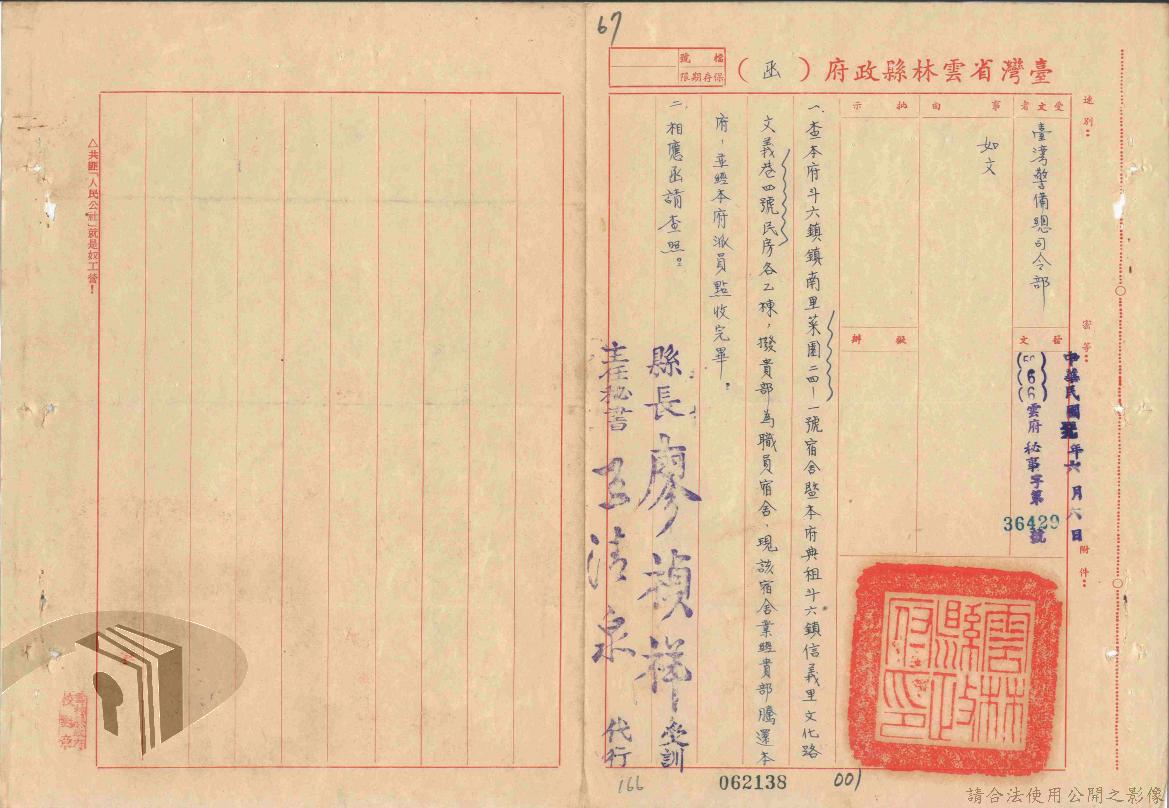 67
檔號
保存期限
臺灣省雲林縣政府（函）
速別：
密等：
附件：
受文者
臺灣警備總司令部
事由
如文
批示
擬辦
發文
中華民國
年六月六日
雲府秘事字第
36429
號
一、查本府斗六鎮鎮南里菜園二四－一號宿舍暨本府典租斗六鎮信義里文化路
文義巷四號民房各乙棟，撥貴部為職員宿舍，現該宿舍業經貴部騰還本
府，並經本府派員點收完畢。
二、相應函請查照。
縣長廖禎祥受訓
主任秘書
清泉代行
雲林縣政府印
△共匪「人民公社」就是奴工營！
166
062138
001
請合法使用公開之影像